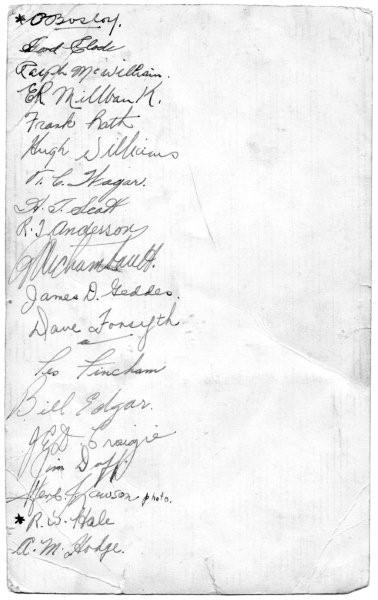 * O Bosloy.
Gord Clode
Ralph McWilliam.
E R Millbank.
Frank Rath
Hugh Williams
N. C. Wagar.
H. T. Scott
R. J. Anderson
J Archambault.
James D. Geddes.
Dave Forsyth
Leo Fincham
Bill Edgar.
J. E. D. Craigie
Jim Duff
Herb. Lawson photo.
* R. W. Hale
A. M. Hodge.